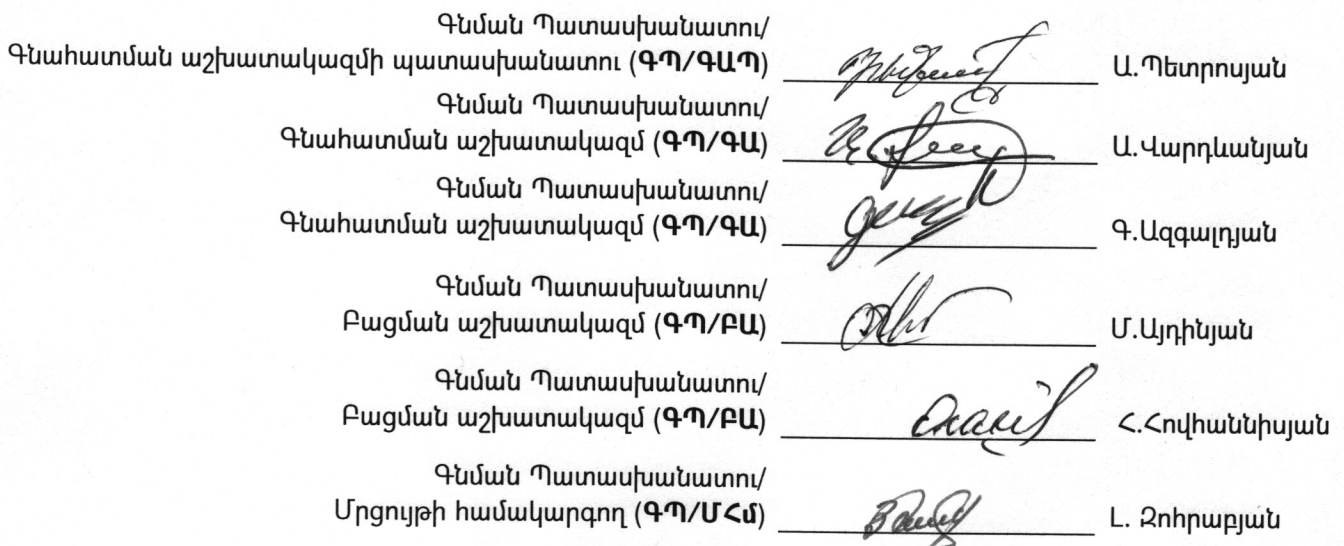 Գնման Պատասխանատու/
Գնահատման աշխատակազմի պատասխանատու (ԳՊ/ԳԱՊ) Ա.Պետրոսյան
Գնման Պատասխանատու/
Գնահատման աշխատակազմ (ԳՊ/ԳԱ) Ա.Վարդևանյան
Գնման Պատասխանատու/
Գնահատման աշխատակազմ (ԳՊ/ԳԱ) Գ.Ազգալդյան
Գնման Պատասխանատու/
Բացման աշխատակազմ (ԳՊ/ԲԱ) Մ.Այդինյան
Գնման Պատասխանատու/
Բացման աշխատակազմ (ԳՊ/ԲԱ) Հ.Հովհաննիսյան
Գնման Պատասխանատու/
Մրցույթի համակարգող (ԳՊ/ՄՀմ) Լ. Զոհրաբյան